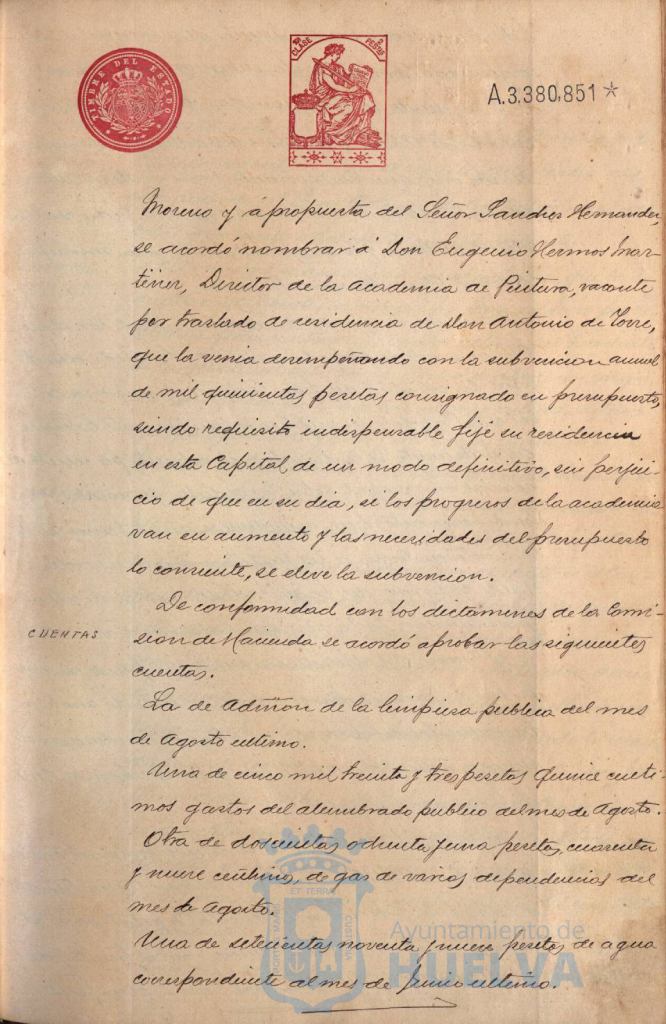 TIMBRE DEL ESTADO
CLASE
2 PESETAS
A.3,380,851*
Moreno y á propuesta del Señor Sanchez Hernandez,
se acordó nombrar á Don Eugenio Hermos Mar-
tinez, Director de la Academia de Pintura, vacante
por traslado de residencia de Don Antonio de Torre,
que la venia desempeñando con la subvencion anual
de mil quinientas pesetas consignado en presupuesto,
siendo requisito indispensable fije su residencia
en esta Capital de un modo definitivo, sin perjui-
cio de que en su dia, si los progresos de la academia
van en aumento y las necesidades del presupuesto
lo consiente, se eleve la subvencion.
De conformidad con los dictamenes de la Comi-
CUENTAS
sion de Hacienda se acordó aprobar las siguientes
cuentas.
La de Admon de la limpiesa publica del mes
de Agosto ultimo.
Una de cinco mil treinta y tres pesetas quince centi-
mos gastos del alumbrado publico del mes de Agosto.
Otra de doscientas ochenta y una pesetas, cuarenta
y nueve centimos, de gas de varias dependencias del
mes de Agosto.
Una de setecientas noventa y nueve pesetas de agua
correspondiente al mes de Junio ultimo.
Ayuntamiento de
HUELVA